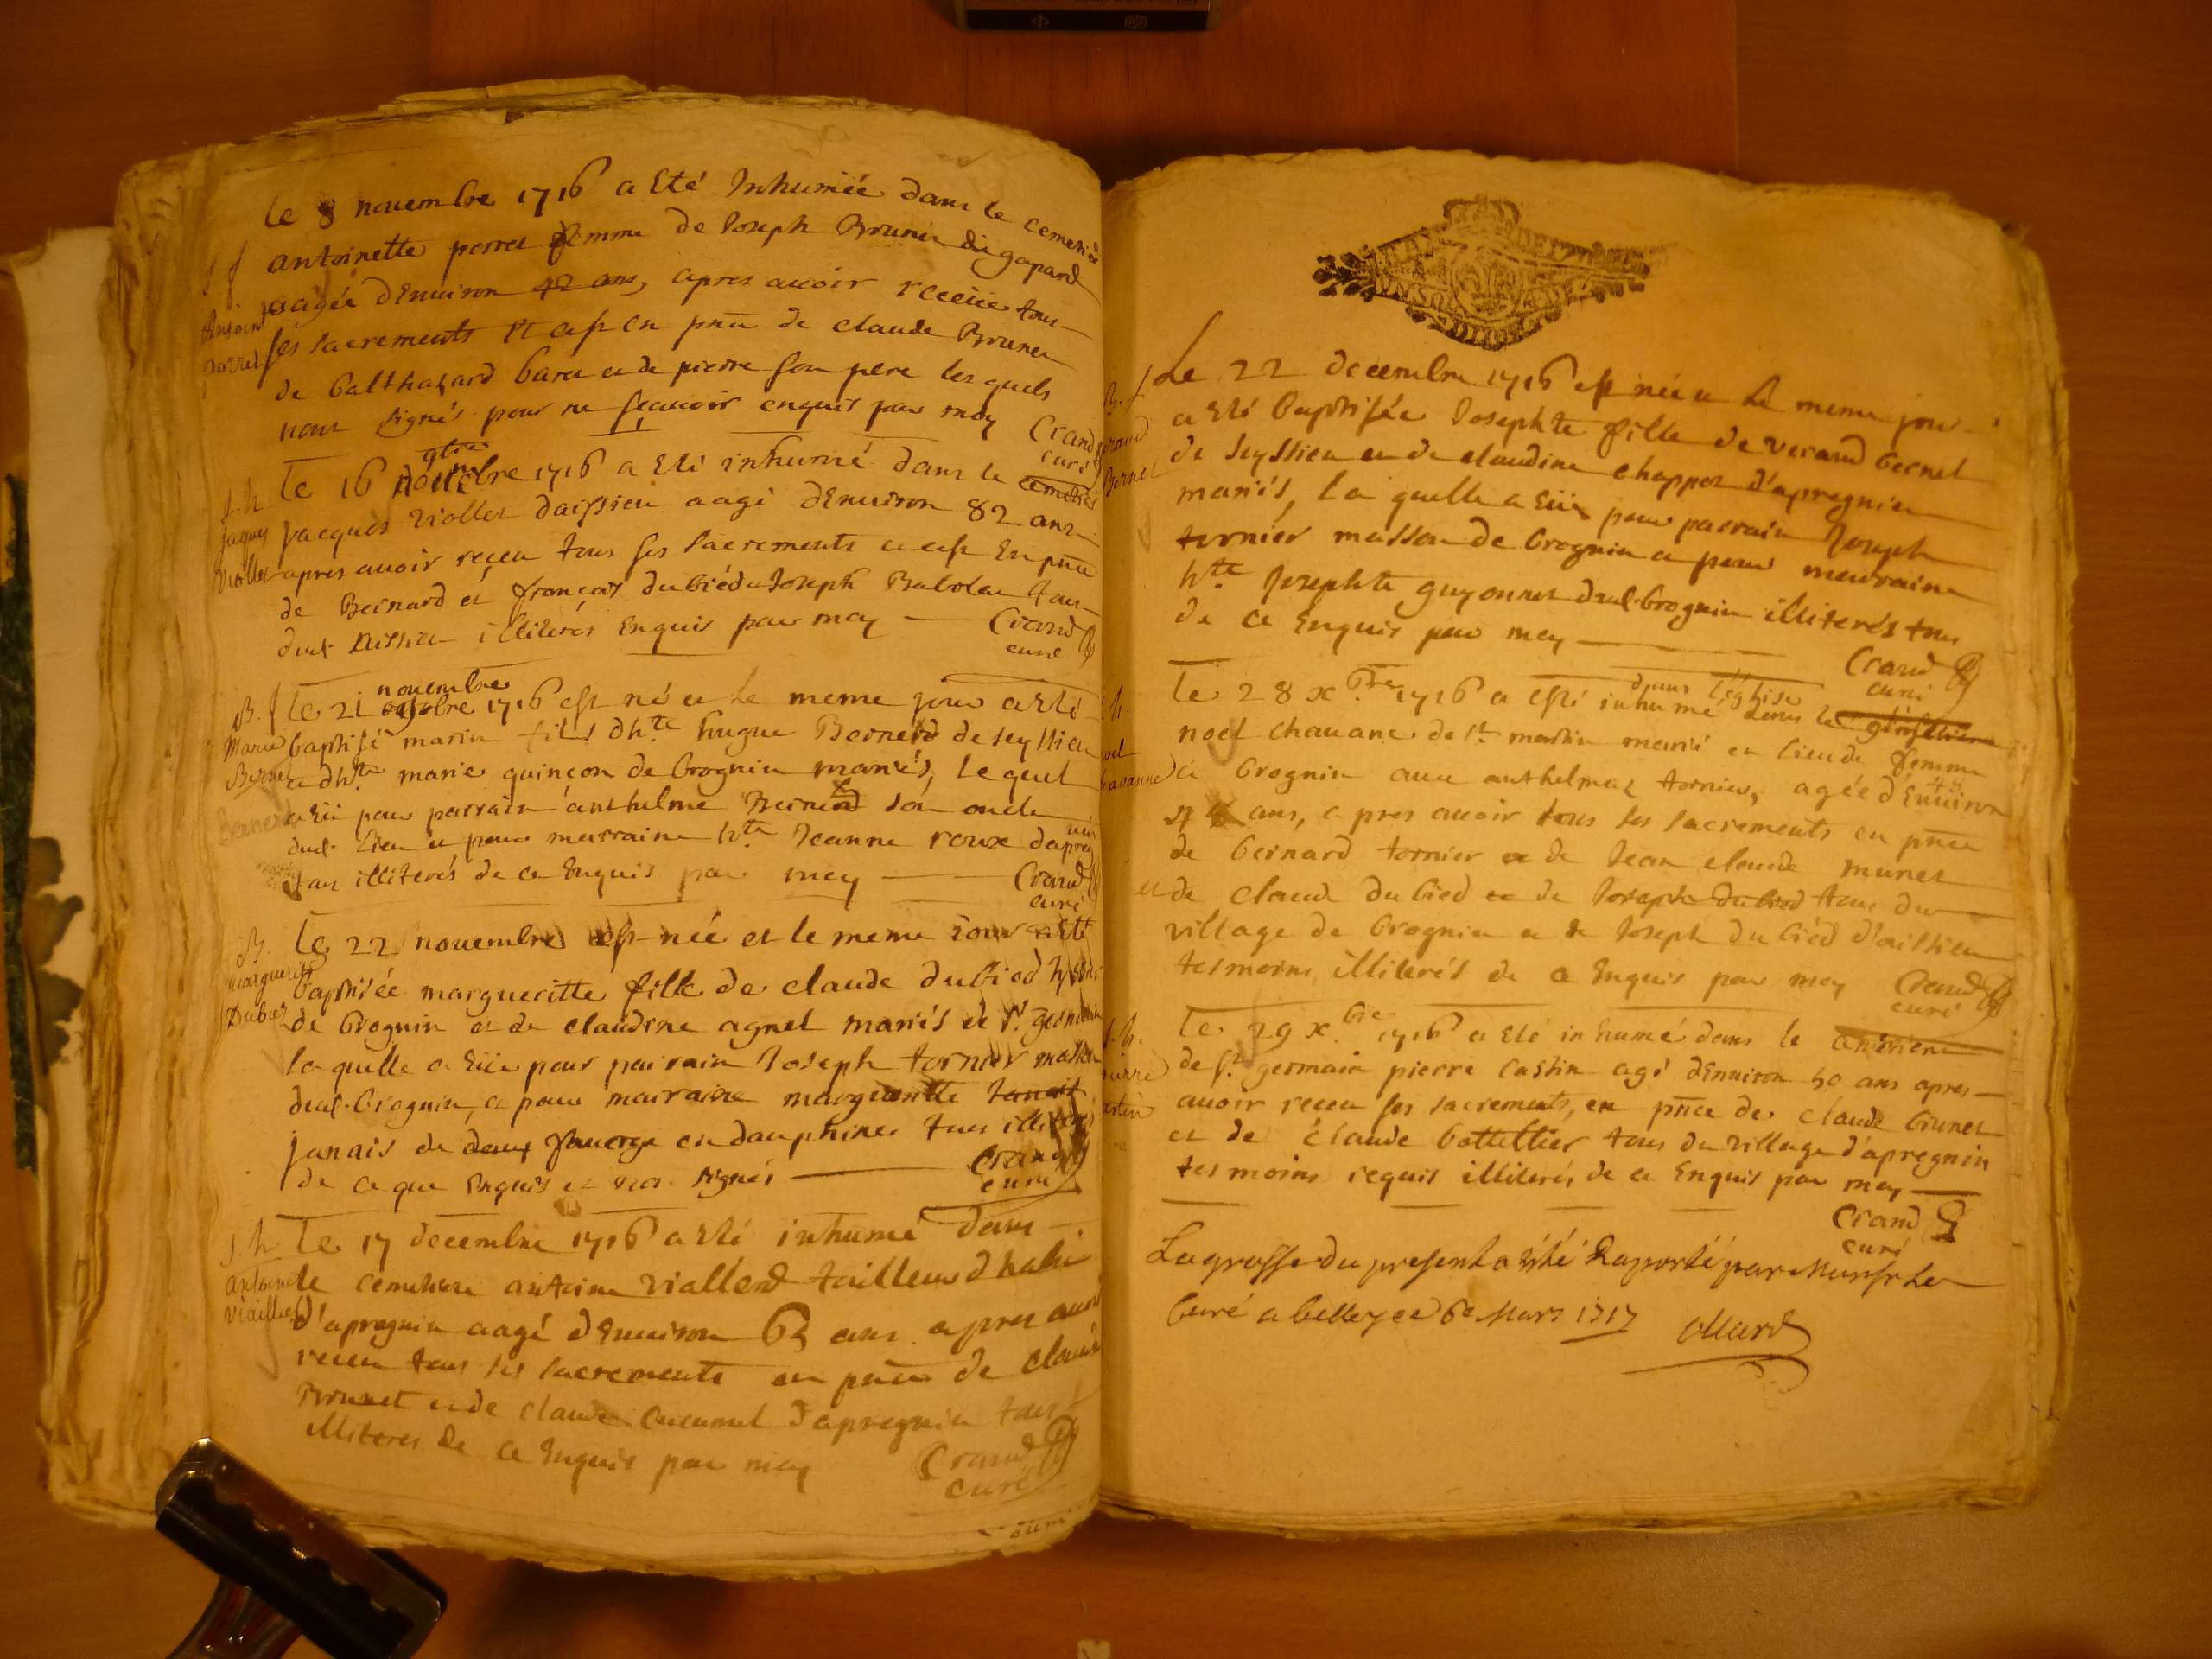 le 8 novembre 1716 a Eté Inhumée dans le cemetiere
S f antoinette perret femme de Joseph Brunet digapard
aagée dEnuiron 42 ans, apres auoir receüe tous
ses sacrements et en pñce de claude Brunet
de balthazard et de pierre son pere lesquels
nont signés pour ne sçauoir enquis par moy
Crand
curé
9bre
le 16 1716 a Eté inhumé dans le cemetiere
S.h
jaques
viollet
jacques viollet daissieu aagé dEnuiron 82 ans
apres auoir receu tous ses sacrements en pñce
de Bernard et françois dubiéd Joseph tous
dud illiterés Enquis par moy
Crand
curé
novembre
B. f le 21 octobre 1716 est né et le meme jour a Eté
baptisé marin fils dh.te hugue Bernerd de seyssieu
et dh.te marie quinçon de brognin mariés, le quel
a Eü pour parrain anthelme son oncle
dud. lieu et pour marraine h.te Jeanne roux
tous illiterés de ce Enquis par moy
Crand
curé
B.
marguerite
Dubied
le 22 novembre est née et le meme jour a eté
baptisée margueritte fille de claude dubied
de brognin et de claudine agnel mariés de s.t germain
la quelle a Eüe pour parrain Joseph tornier masson
dud. brognin, et pour marraine margueritte
janais de en dauphiner tous illiterés
de ce que Enquis et non signés
Crand
curé
S.h
antoine
viallet
le 17 decembre 1716 a Eté inhumé dans
le cemetiere antoine viallend tailleur dhabi
d'apregnin aagé dEnuiron 63 ans apres auoir
receu tous ses sacrements en pñce de claude
Brunet et de claude cucumel dapregnin tous
illiteres de ce Enquis par moy
Crand
curé
B. f
Bernet
Le 22 decembre 1716 est née et Le meme jour
a Eté baptisée Josephte fille de verand bernet
de seyssieu et de claudine chappot d'apregnin
mariés, la quelle a Eüe pour parrain Joseph
tornier masson de brognin et pour maraine
h.te Josephte guyonnet dud. brognin illiterés tous
de ce Enquis par moy
Crand
curé
dans l'église
le 28 x.bre 1716 a esté inhumé dans le
noel chauane de s.t martin marié en lieu de femme
a brognin auec anthelmaz tornier, agée d'Enuiron
48
ans, apres auoir tous ses sacrements en pñce
de bernard tornier et de Jean claude munet
et de claude du bied et de Joseph dubied tous du
village de brognin et de Joseph du biéd d'aissieu
tesmoins illiterés de ce Enquis par moy
Crand
curé
S.h.
le 29 x.bre 1716 a Eté inhumé dans le cemetiere
de s.t germain pierre castin agé dEnuiron 50 ans apres
auoir receu ses sacrements, en pñce de claude brunet
et de claude bottellier tous du village d'apregnin
tesmoins requis illiterés de ce Enquis par moy
Crand
curé
La grosse du present a Eté Raporté par Monsr Le
Curé a belley ce 6e Mars 1717